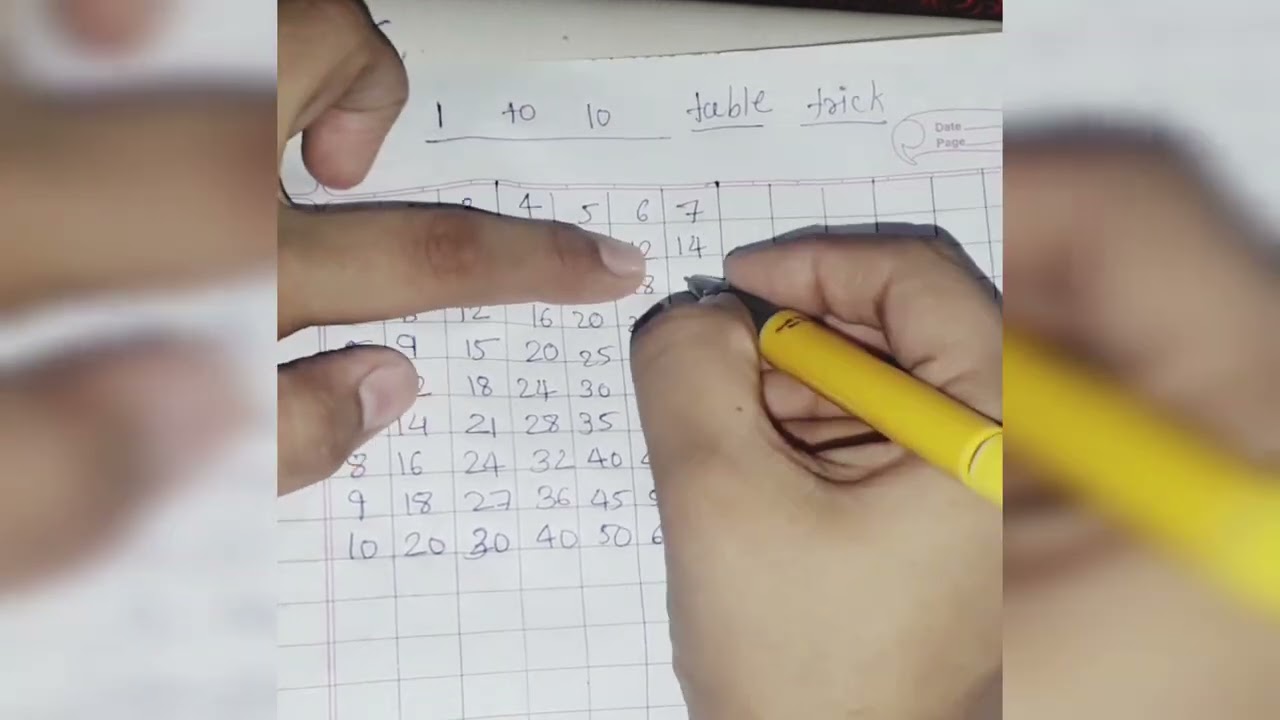 1 to 10 table trick
Date
Page
4 5 6 7
14
12 16 20
9 15 20 25
18 24 30
14 21 28 35
8 16 24 32 40
9 18 27 36 45
10 20 30 40 50